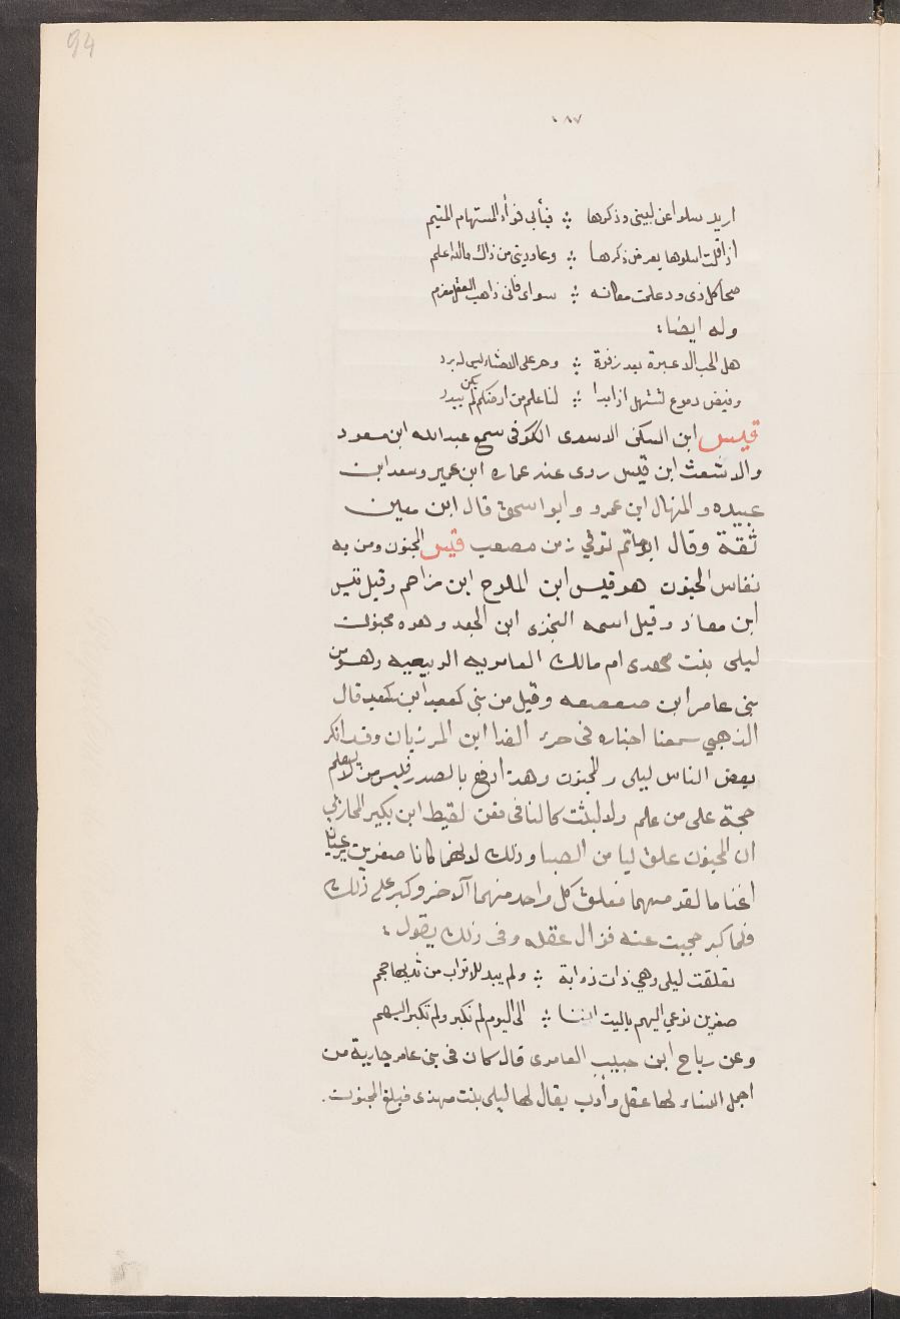 94
١٨٧
اريد سلوا عن لبينى وذكرها ؞ فيأبى فؤاد المستهام المتيم
اذا قلت اسلوها يعرض ذكرها ؞ وعاودنى من ذاك ما الله اعلم
صحا كل ذى ود علمت مكانه ؞ سواى فانى ذاهب العقل مغرم
وله ايضا :
هل الحب الا عبرة بعد زفرة ؞ وحر على الاحشاء ليس له برد
وفيض دموع تستهل اذا بدا ؞ لنا علم من ارضكم لم يكن يبدو
قيس ابن السكن الاسدى الكوفى سمع عبدالله ابن مسعود
والاشعث ابن قيس روى عنه عماره ابن عمير وسعد ابن
عبيده والمنهال ابن عمرو وابو اسحق قال ابن معين
ثقة وقال ابو حاتم توفي زمن مصعب قيس المجنون ومن به
نفاس المجنون هو قيس ابن الملوح ابن مزاحم وقيل قيس
ابن معاذ وقيل اسمه البخترى ابن الجعد وهو مجنون
ليلى بنت مهدى ام مالك العامريه الربيعيه وهو من
بنى عامر ابن صعصعه وقيل من بنى كعب ابن كعب قال
الذهبي سمعنا اخباره فى جزء الفه ابن المرزبان وقد انكر
بعض الناس ليلى والمجنون وهذا دفع بالصدر فليس من لا يعلم
حجة على من علم ولا المثبت كالنافى فعن لقيط ابن بكير المحاربي
ان المجنون علق ليلى من الصبا وذلك لانهما كانا صغيرين يرعيان
اغناما لقومهما فعلق كل واحد منهما الآخر وكبر على ذلك
فلما كبر حجبت عنه فزال عقله وفى ذلك يقول :
تعلقت ليلى وهي ذات ذوابة ؞ ولم يبد للاتراب من ثديها حجم
صغيرين نرعي البهم ياليت اننا ؞ الى اليوم لم نكبر ولم تكبر البهم
وعن رباح ابن حبيب العامرى قال كان فى بنى عامر جارية من
اجمل النساء لها عقل وأدب يقال لها ليلى بنت مهدى فبلغ المجنون .